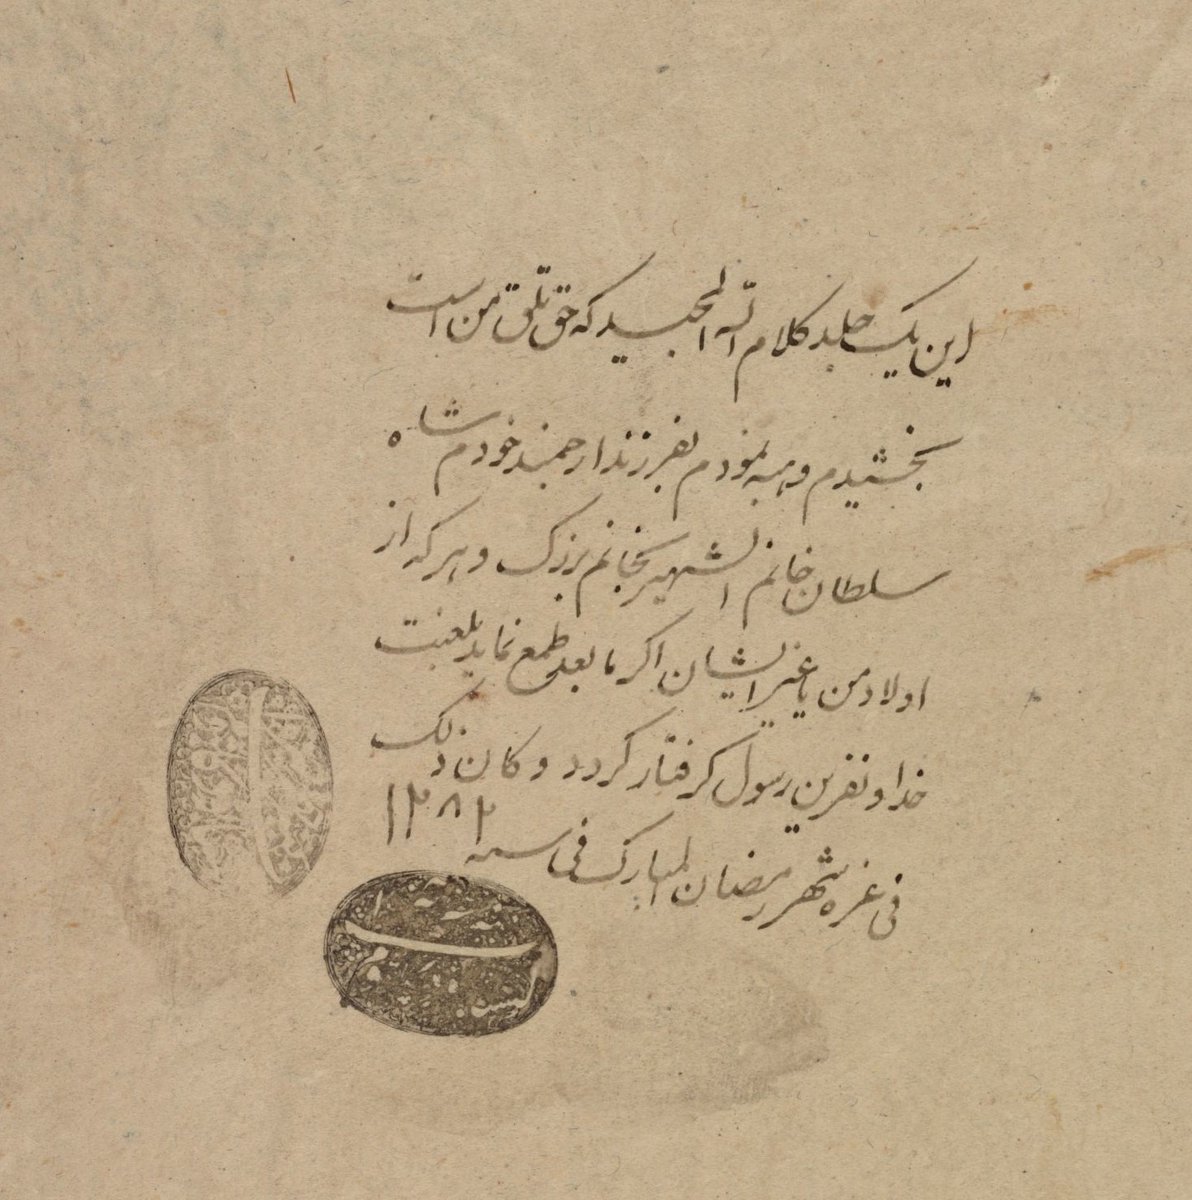 این یک جلد کلام الله المجید که حق تلقی من است
بخشیدم و هبه نمودم بفرزند ارجمند خودم شاه
سلطان خانم الشهیر بخانم بزرک و هر که از
اولاد من یا غیر ایشان اکر ما بعد طمع نماید بلعنت
خدا و نفرین رسول کرفتار کردد و کان ذلک
فی غره شهر رمضان المبارک فی سنه ۱۲۸۲